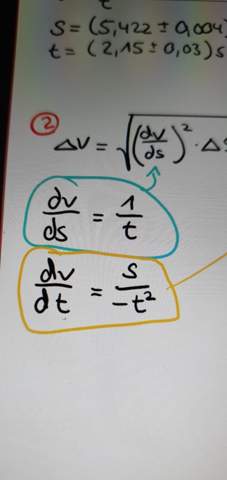 t
s = (5,422 ± 0,004)
t = (2,15 ± 0,03) s
②
ΔV = √(dv/ds)² · Δ
dv/ds = 1/t
dv/dt = s/-t²